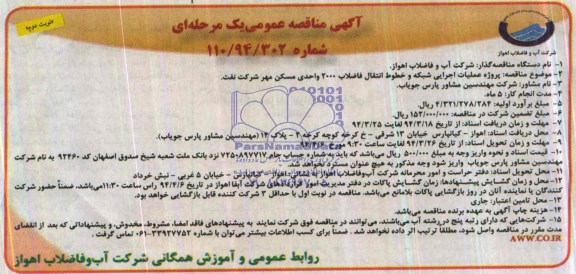 نوبت دوم
آگهی مناقصه عمومی یک مرحله‌ای
شماره ۱۱۰/۹۴/۳۰۲
شرکت آب و فاضلاب اهواز
۱- نام دستگاه مناقصه‌گذار: شرکت آب و فاضلاب اهواز.
۲- موضوع مناقصه: پروژه عملیات اجرایی شبکه و خطوط انتقال فاضلاب ۲۰۰۰ واحدی مسکن مهر شرکت نفت.
۳- نام مشاور: شرکت مهندسین مشاور پارس جویاب.
۴- مدت انجام کار: ۵ ماه.
۵- مبلغ برآورد اولیه: ۴/۳۲۱/۲۷۸/۲۸۴ ریال.
۶- مبلغ تضمین شرکت در مناقصه: ۱۵۲/۰۰۰/۰۰۰ ریال.
۷- مهلت و زمان دریافت اسناد: از تاریخ ۹۴/۳/۱۸ لغایت ۹۴/۳/۲۵
۸- محل دریافت اسناد: اهواز - کیانپارس خیابان ۱۳ شرقی - خ کرخه کوچه کرخه ۲ - پلاک ۱۴ (مهندسین مشاور پارس جویاب).
۹- مهلت و زمان تحویل اسناد: از تاریخ ۹۴/۳/۲۶ لغایت ساعت ۹:۳۰ مورخ
۱۰- قیمت اسناد و نحوه واریز وجه به مبلغ ۵۰۰/۰۰۰ ریال می‌باشد که باید به شماره حساب جام ۷۲۵۰۸۹۷۷۱۷ نزد بانک ملت شعبه شیخ صدوق اصفهان کد ۹۲۴۶۰ به نام شرکت مهندسین مشاور پارس جویاب واریز شود وجه مذکور به هیچ عنوان مسترد نخواهد شد.
۱۱- محل تحویل اسناد: دفتر حراست و امور محرمانه شرکت آب‌وفاضلاب اهواز به نشانی اهواز - کیانپارس - خیابان ۵ غربی - نبش خرداد
۱۲- محل و زمان گشایش پیشنهادها: زمان گشایش پاکات در دفتر مدیریت امور قراردادهای شرکت آبفا اهواز در تاریخ ۹۴/۴/۶ راس ساعت ۱۱:۳۰ می‌باشد. ضمناً حضور شرکت کنندگان یا نماینده آنان در روز بازگشایی پاکات بلامانع می‌باشد. مناقصه در نوبت اول با حداقل ۳ شرکت کننده قابل بازگشایی خواهد بود.
۱۳- محل تامین اعتبار: جاری
۱۴- هزینه چاپ آگهی به عهده برنده مناقصه می‌باشد.
۱۵- شرکت‌هایی که دارای رتبه پنج در رشته آب می‌باشند، می‌توانند در مناقصه فوق شرکت نمایند به پیشنهادهای فاقد امضا، مشروط، مخدوش، و پیشنهاداتی که بعد از انقضای مدت مقرر در مناقصه واصل شود، مطلقا ترتیب اثر داده نخواهد شد. ضمنا برای کسب اطلاعات بیشتر می‌توان با شماره ۳۳۹۲۷۷۵۲-۰۶۱ تماس گرفت.
AWW.CO.IR
روابط عمومی و آموزش همگانی شرکت آب‌وفاضلاب اهواز